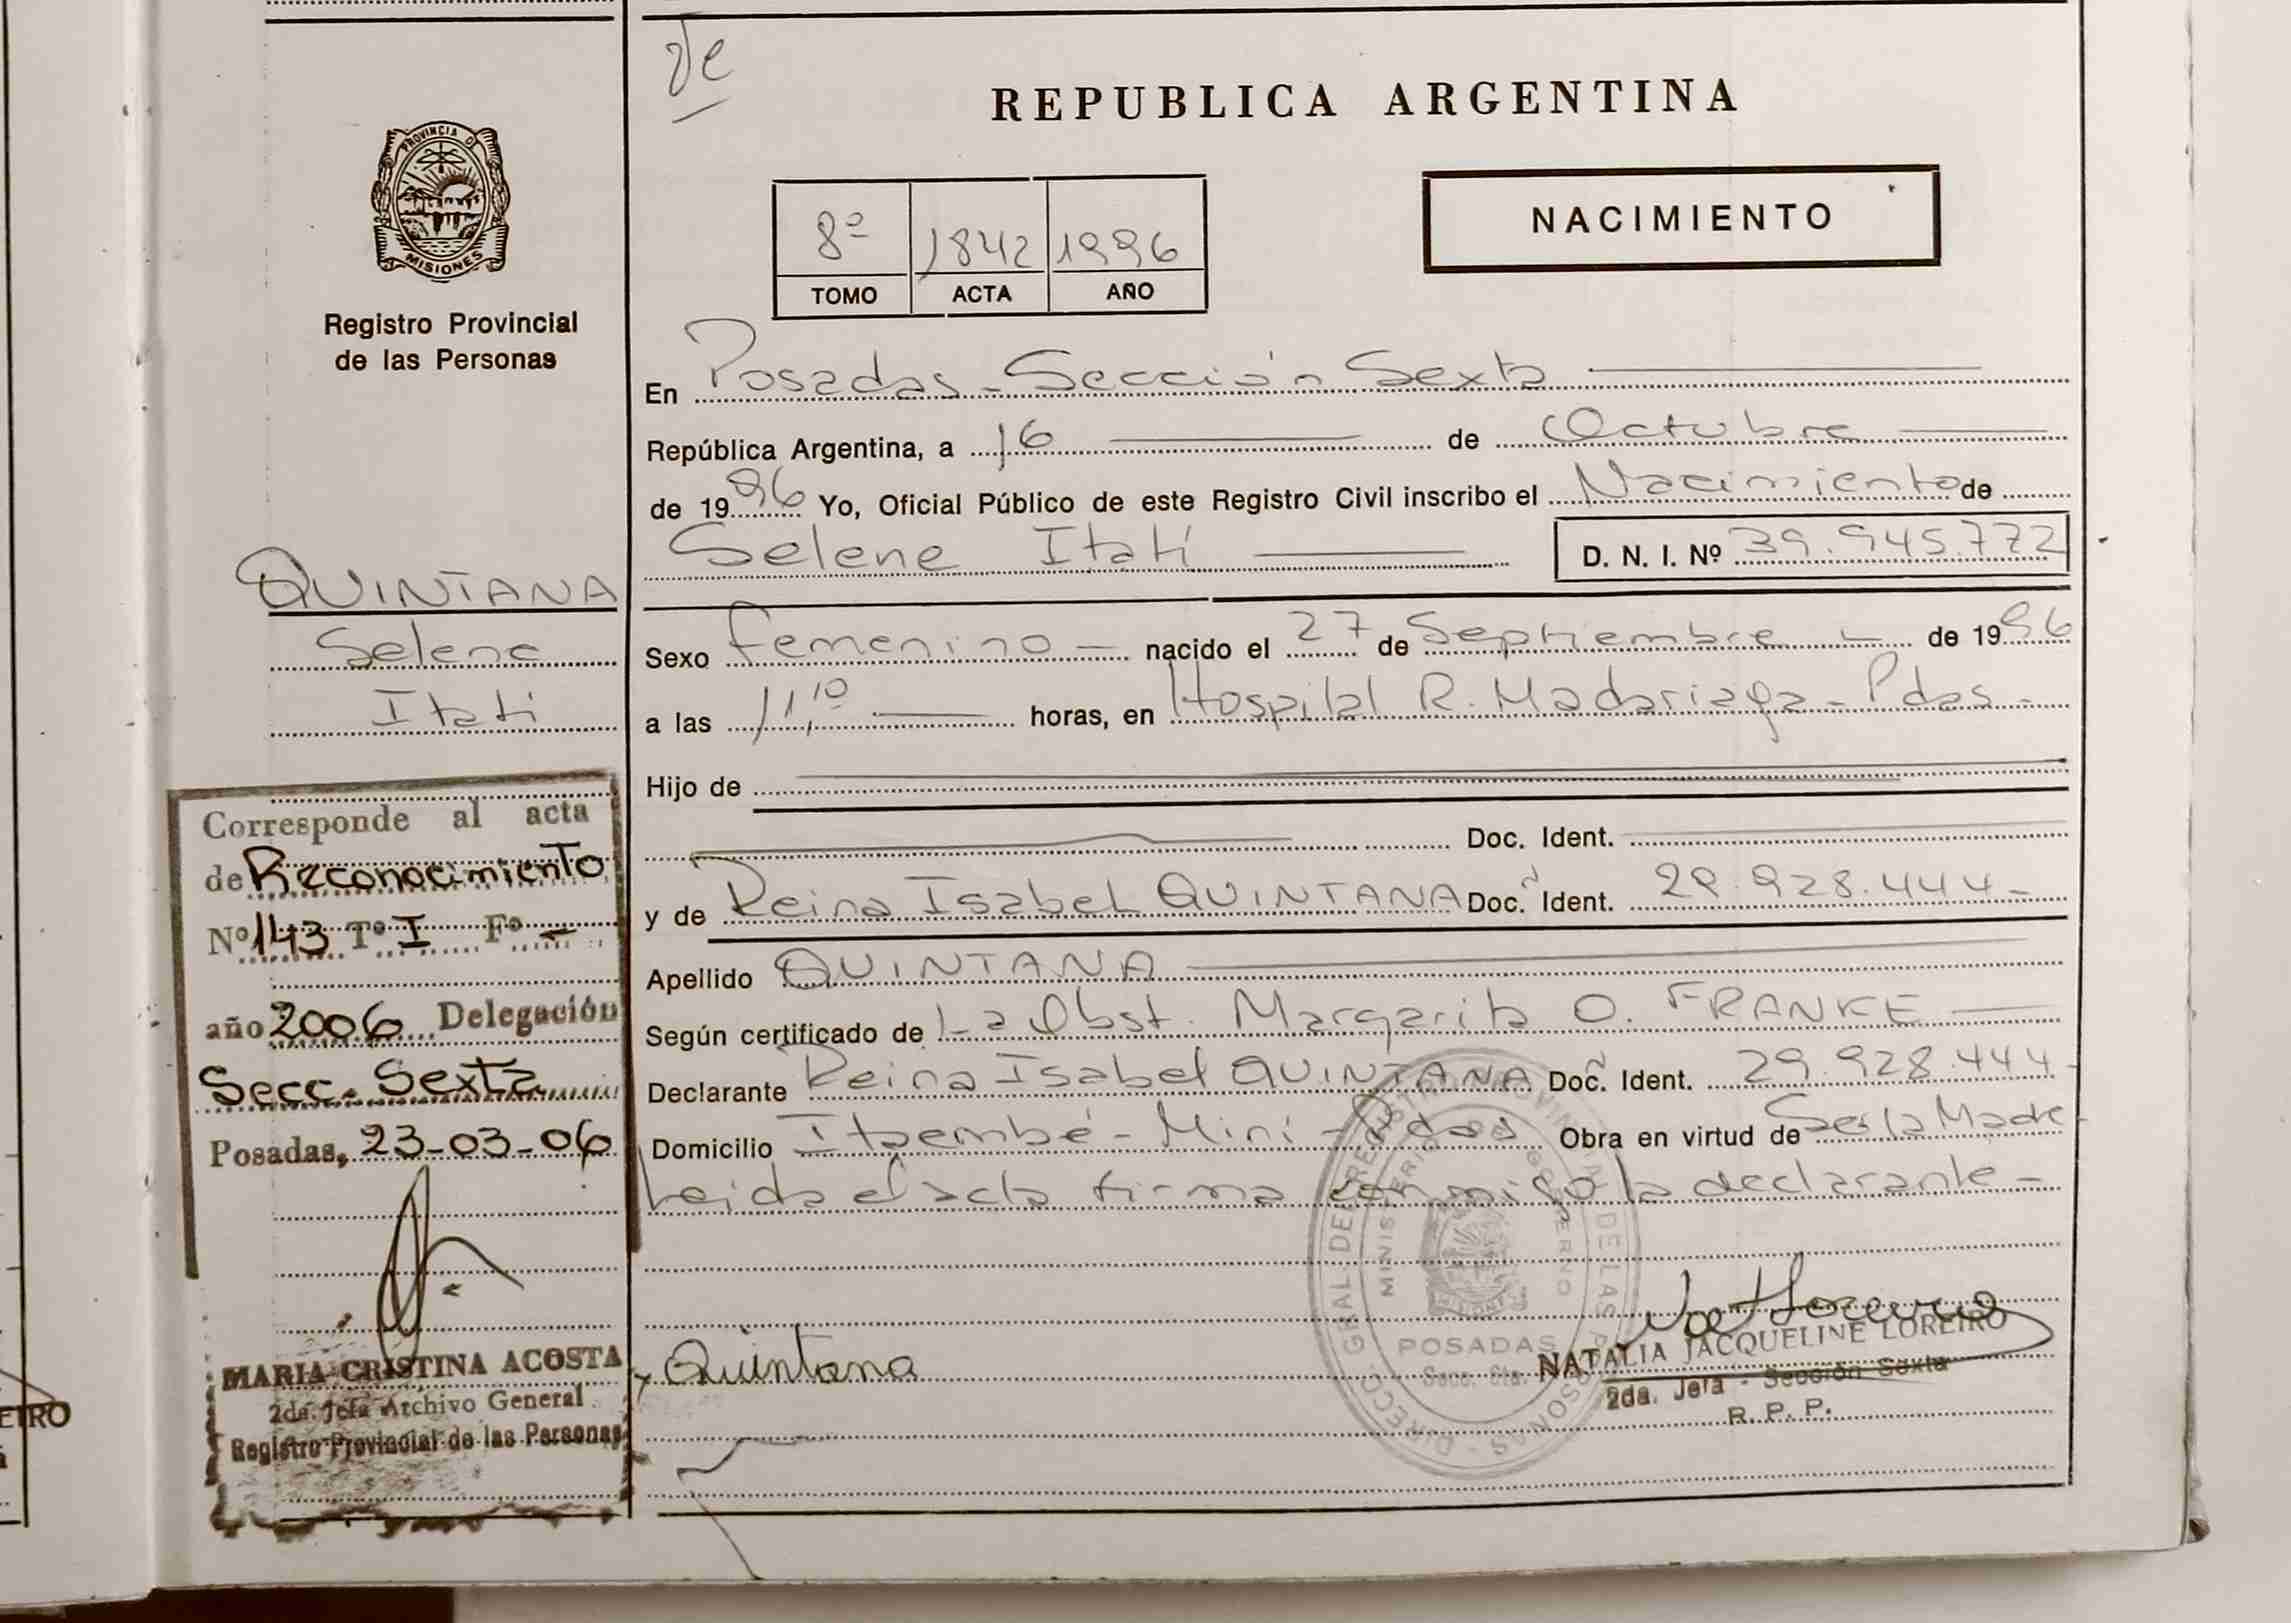 de
REPUBLICA ARGENTINA
PROVINCIA DE
MISIONES
Registro Provincial
de las Personas
8º 1842 1996
TOMO ACTA AÑO
NACIMIENTO
En Posadas - Sección Sexta
República Argentina, a 16 de Octubre
de 1996 Yo, Oficial Público de este Registro Civil inscribo el Nacimiento de
Selene Itatí D. N. I. Nº 39.945.772
QUINTANA
Selene
Itatí
Sexo Femenino - nacido el 27 de Septiembre - de 1996
a las 11,10 horas, en Hospital R. Madariaga - Pdas -
Hijo de
Doc. Ident.
y de Reina Isabel QUINTANA Doc. Ident. 29.928.444 -
Apellido QUINTANA
Según certificado de La Obst. Margarita O. FRANKE
Declarante Reina Isabel QUINTANA Doc. Ident. 29.928.444 -
Domicilio Itaembé - Miní - Pdas Obra en virtud de Ser la Madre -
Leida el acta firma conmigo la declarante -
Corresponde al acta
de Reconocimiento
Nº 143 Tº I Fº -
año 2006 Delegación
Secc. Sexta
Posadas, 23-03-06
MARIA CRISTINA ACOSTA
2da. Jefa Archivo General
Registro Provincial de las Personas
x Quintana
DIRECC. GRAL DEL REGISTRO PROVINCIAL DE LAS PERSONAS
MINISTERIO DE GOBIERNO
MISIONES
POSADAS
Secc. 6ta.
NATALIA JACQUELINE LOREIRO
2da. Jefa - Sección Sexta
R. P. P.
EIRO